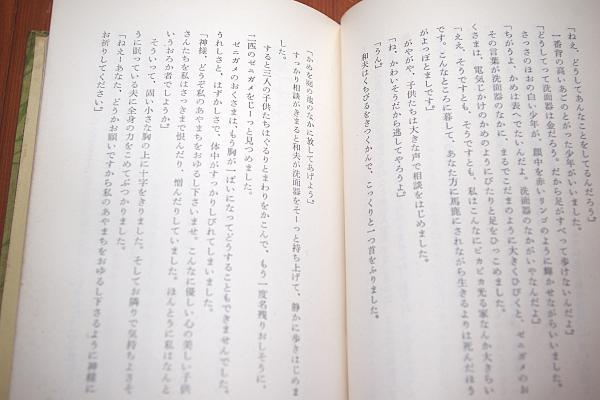 『ねえ、どうしてあんなことをしてるんだろう』
一番背の高いあごのとがった少年がいいました。
『どうしてって洗面器は金だろう。だから足がすべって歩けないんだよ』
さっきのほほの白い少年が、顔中を赤いリンゴのように輝かせながらいいました。
『ちがうよ、かめは表へでたいんだよ。洗面器のなかがいやなんだよ』
その言葉が洗面器のなかに、まるでこだまのように大きくひびくと、ゼニガメのお
くさまは、電気じかけのかめのようにぴたりと足をひっこめました。
『ええ、そうですとも、そうですとも。私はこんなにピカピカ光る家なんか大きらい
です。こんなところに暮して、あなた方に馬鹿にされながら生きるよりは死んだほう
がよっぽどましです』
がやがや、子供たちは大きな声で相談をはじめました。
『ね、かわいそうだから逃してやろうよ』
『うん』
和夫はくちびるをきつくかんで、こっくりと一つ首をふりました。
『かめを庭の池のなかに放してあげよう』
すっかり相談がきまると和夫が洗面器をそーっと持ち上げて、静かに歩きはじめま
した。
すると三人の子供たちはぐるりとまわりをかこんで、もう一度名残りおしそうに、
二匹のゼニガメをじーっと見つめました。
ゼニガメのおくさまは、もう胸が一ぱいになってどうすることもできませんでした。
うれしさと、はずかしさで、体中がすっかりしびれてしまいました。
『神様、どうぞ私のあやまちをおゆるし下さいませ。こんなに優しい心の美しい子供
さんたちを私はさっきまで恨んだり、憎んだりしていました。ほんとうに私はなんと
いうおろか者でしょうか』
そういって、固い小さな胸の上に十字をきりました。そしてお隣りで気持ちよさそ
うに眠っている夫に全身の力をこめてぶつかりました。
『ねえーあなた、どうかお願いですから私のあやまちをおゆるし下さるように神様に
お祈りしてください』